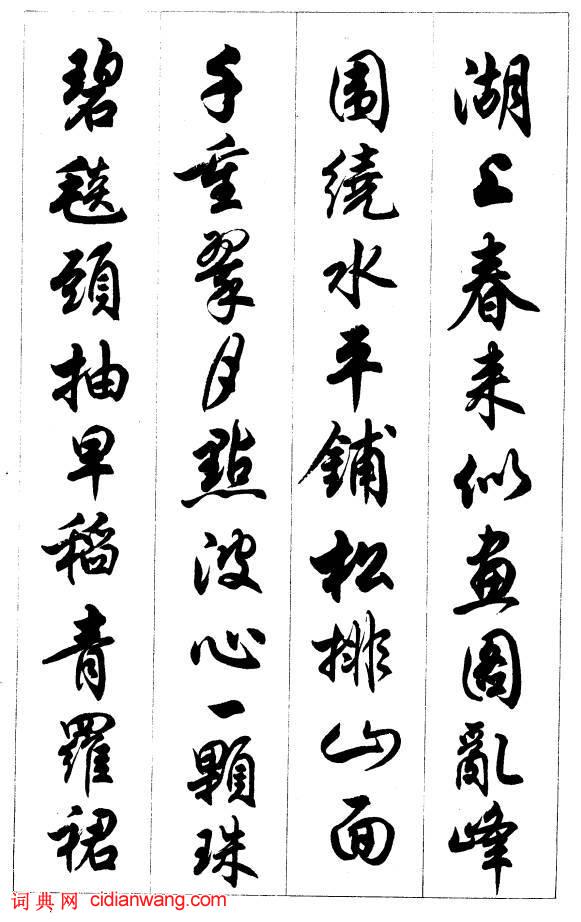 湖上春来似畫圖亂峰
围繞水平鋪松排山面
千重翠月點波心一顆珠
碧毯頭抽早稻青羅裙
词典网 cidianwang.com